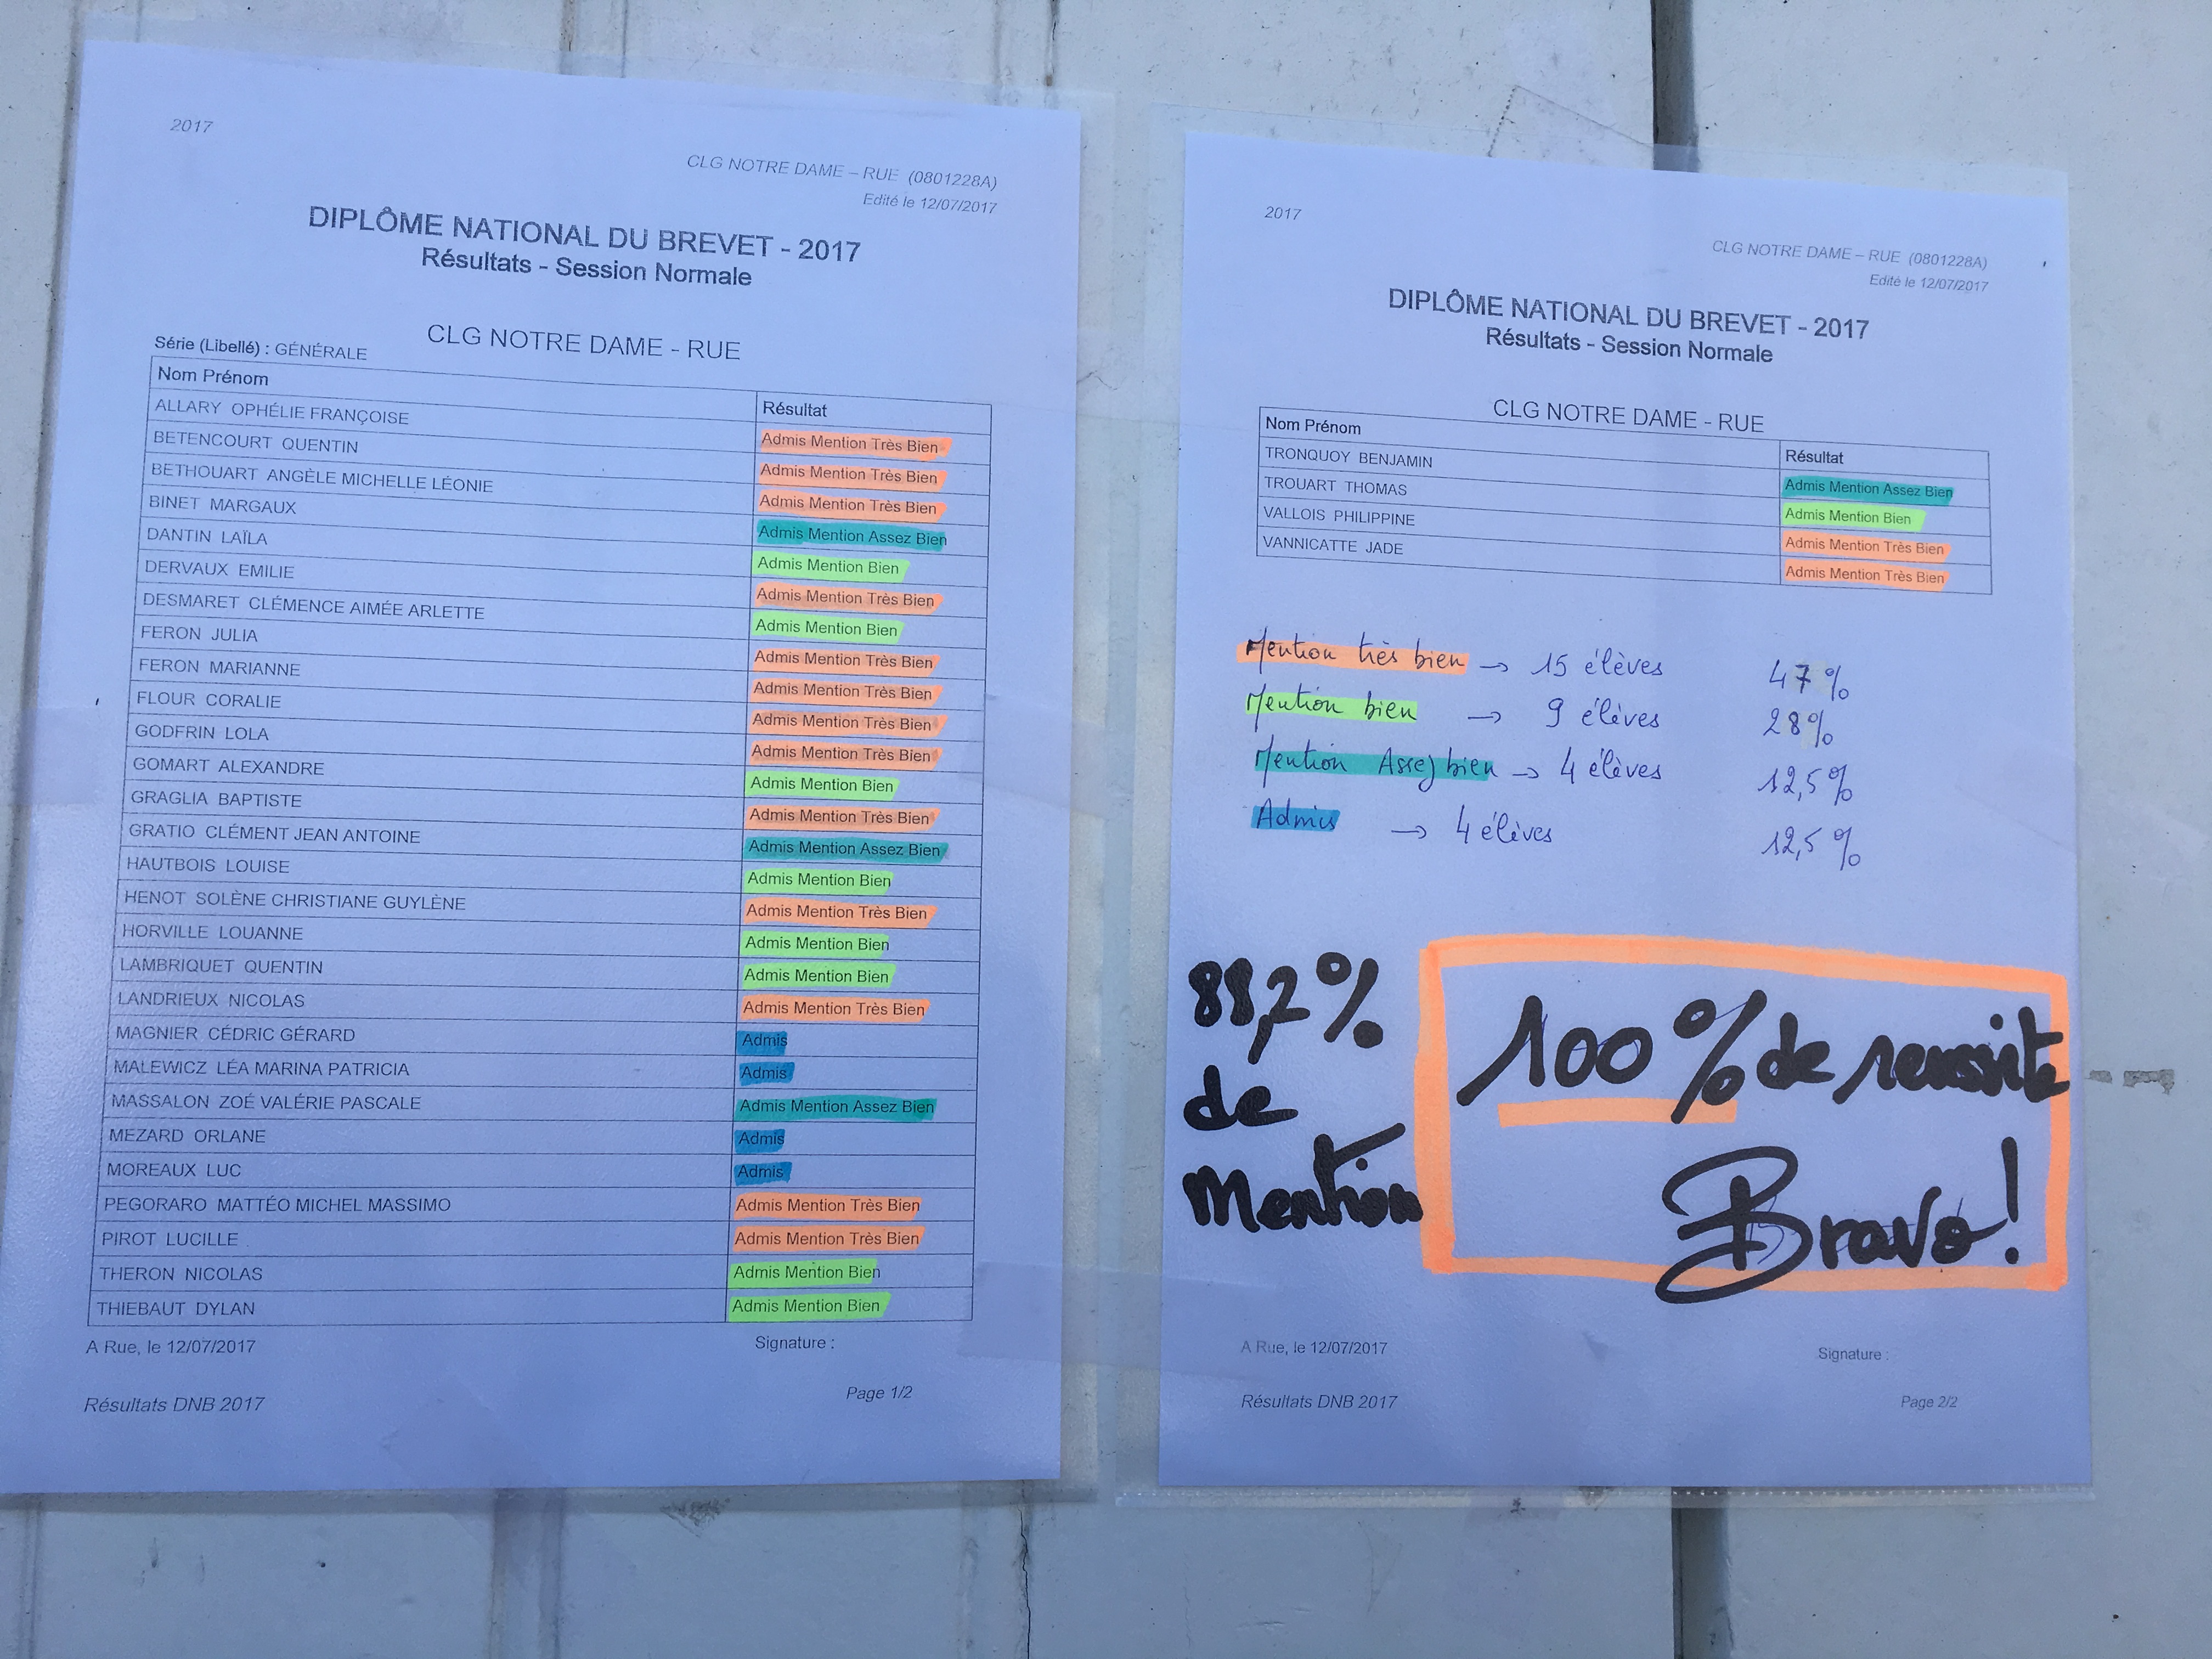 2017
CLG NOTRE DAME – RUE (0801228A)
Edité le 12/07/2017
DIPLÔME NATIONAL DU BREVET - 2017
Résultats - Session Normale
CLG NOTRE DAME - RUE
Série (Libellé) : GÉNÉRALE
Nom Prénom Résultat
ALLARY OPHÉLIE FRANÇOISE Admis Mention Très Bien
BETENCOURT QUENTIN Admis Mention Très Bien
BETHOUART ANGÈLE MICHELLE LÉONIE Admis Mention Très Bien
BINET MARGAUX Admis Mention Assez Bien
DANTIN LAÏLA Admis Mention Bien
DERVAUX EMILIE Admis Mention Très Bien
DESMARET CLÉMENCE AIMÉE ARLETTE Admis Mention Bien
FERON JULIA Admis Mention Très Bien
FERON MARIANNE Admis Mention Très Bien
FLOUR CORALIE Admis Mention Très Bien
GODFRIN LOLA Admis Mention Très Bien
GOMART ALEXANDRE Admis Mention Bien
GRAGLIA BAPTISTE Admis Mention Très Bien
GRATIO CLÉMENT JEAN ANTOINE Admis Mention Assez Bien
HAUTBOIS LOUISE Admis Mention Bien
HENOT SOLÈNE CHRISTIANE GUYLÈNE Admis Mention Très Bien
HORVILLE LOUANNE Admis Mention Bien
LAMBRIQUET QUENTIN Admis Mention Bien
LANDRIEUX NICOLAS Admis Mention Très Bien
MAGNIER CÉDRIC GÉRARD Admis
MALEWICZ LÉA MARINA PATRICIA Admis
MASSALON ZOÉ VALÉRIE PASCALE Admis Mention Assez Bien
MEZARD ORLANE Admis
MOREAUX LUC Admis
PEGORARO MATTÉO MICHEL MASSIMO Admis Mention Très Bien
PIROT LUCILLE Admis Mention Très Bien
THERON NICOLAS Admis Mention Bien
THIEBAUT DYLAN Admis Mention Bien
A Rue, le 12/07/2017 Signature :
Résultats DNB 2017 Page 1/2
2017
CLG NOTRE DAME – RUE (0801228A)
Edité le 12/07/2017
DIPLÔME NATIONAL DU BREVET - 2017
Résultats - Session Normale
CLG NOTRE DAME - RUE
Nom Prénom Résultat
TRONQUOY BENJAMIN Admis Mention Assez Bien
TROUART THOMAS Admis Mention Bien
VALLOIS PHILIPPINE Admis Mention Très Bien
VANNICATTE JADE Admis Mention Très Bien
Mention très bien → 15 élèves 47 %
Mention bien → 9 élèves 28 %
Mention Assez bien → 4 élèves 12,5 %
Admis → 4 élèves 12,5 %
88,2 %
de
Mention
100 % de reussite
Bravo !
A Rue, le 12/07/2017 Signature :
Résultats DNB 2017 Page 2/2